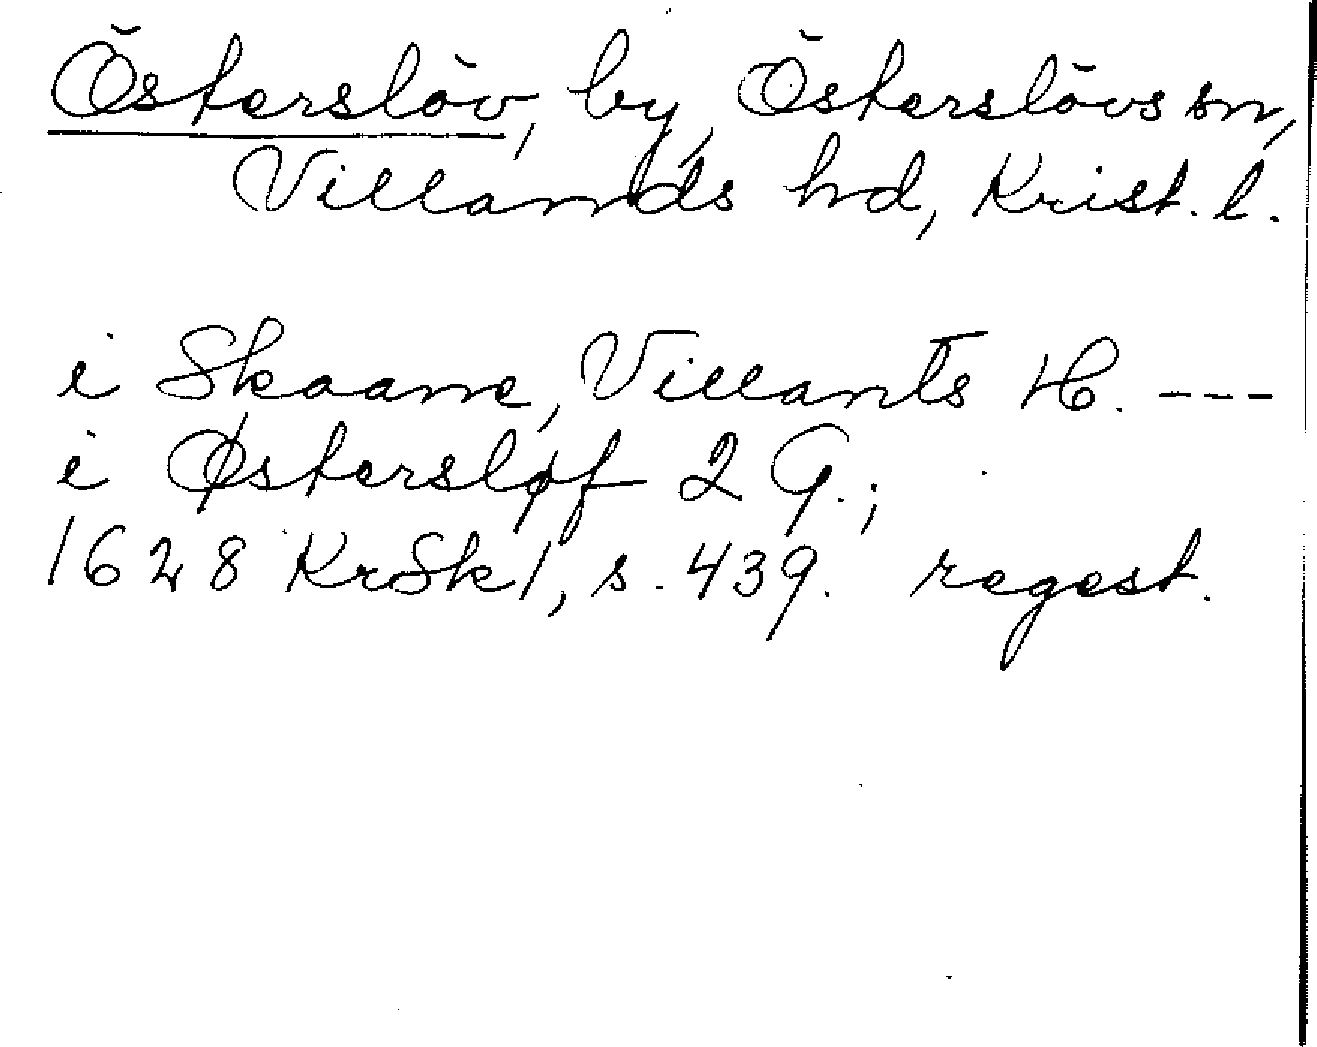 Österslöv, by, Österslövs sn,
Villands hd, Krist. l.
i Skaane, Villants H. ---
i Østersløf 2 G.;
1628 KrSk 1, s. 439. regest.